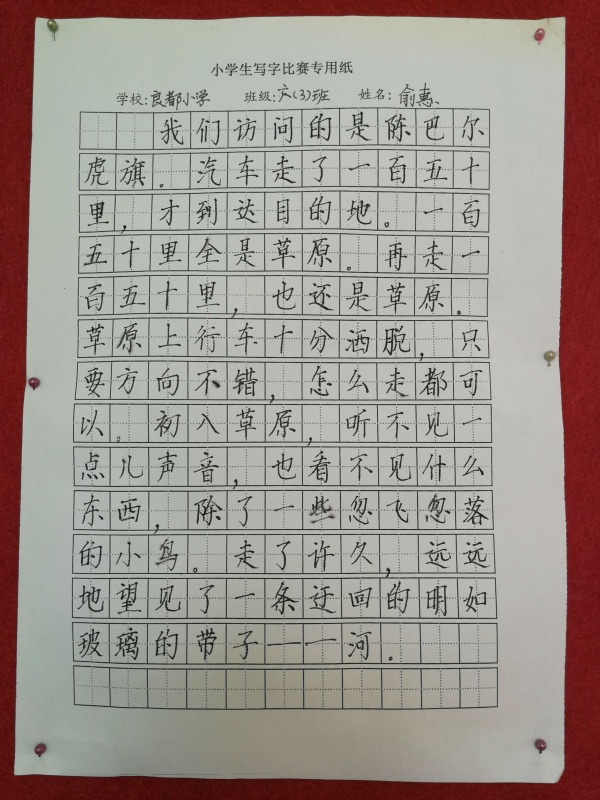 小学生写字比赛专用纸
学校:良都小学 班级:六(3)班 姓名:俞惠
我们访问的是陈巴尔
虎旗。汽车走了一百五十
里,才到达目的地。一百
五十里全是草原。再走一
百五十里,也还是草原。
草原上行车十分洒脱,只
要方向不错,怎么走都可
以。初入草原,听不见一
点儿声音,也看不见什么
东西,除了一些忽飞忽落
的小鸟。走了许久,远远
地望见了一条迂回的明如
玻璃的带子——河。